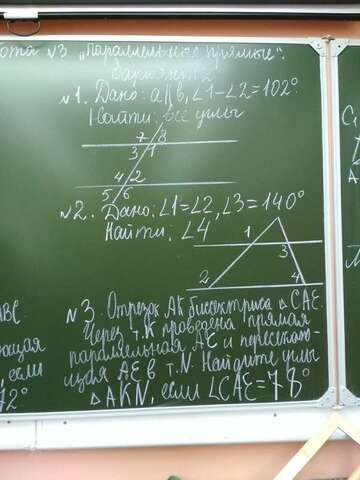 бота №3 „Параллельные прямые".
Вариант 2
№1. Дано: a||b, ∠1-∠2=102°
Найти: все углы
7 8
3 1
4 2
5 6
№2. Дано: ∠1=∠2, ∠3=140°
Найти: ∠4
1
3
2 4
№3. Отрезок AK биссектриса △CAE.
Через т.K проведена прямая
параллельная AE и пересекаю-
щая AE в т.N. Найдите углы
△AKN, если ∠CAE=78°
ABC
ющая
, если
72°
C